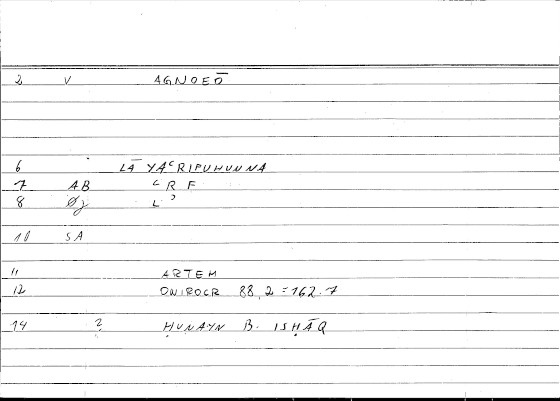 2 V AGNOEŌ
6 LĀ YAʿRIFUHUNNA
7 AB ʿ R F
8 Øj L ʾ
10 SA
11 ARTEM
12 ONIROCR 88,2 = 162.7
14 ? ḤUNAYN B. ISḤĀQ